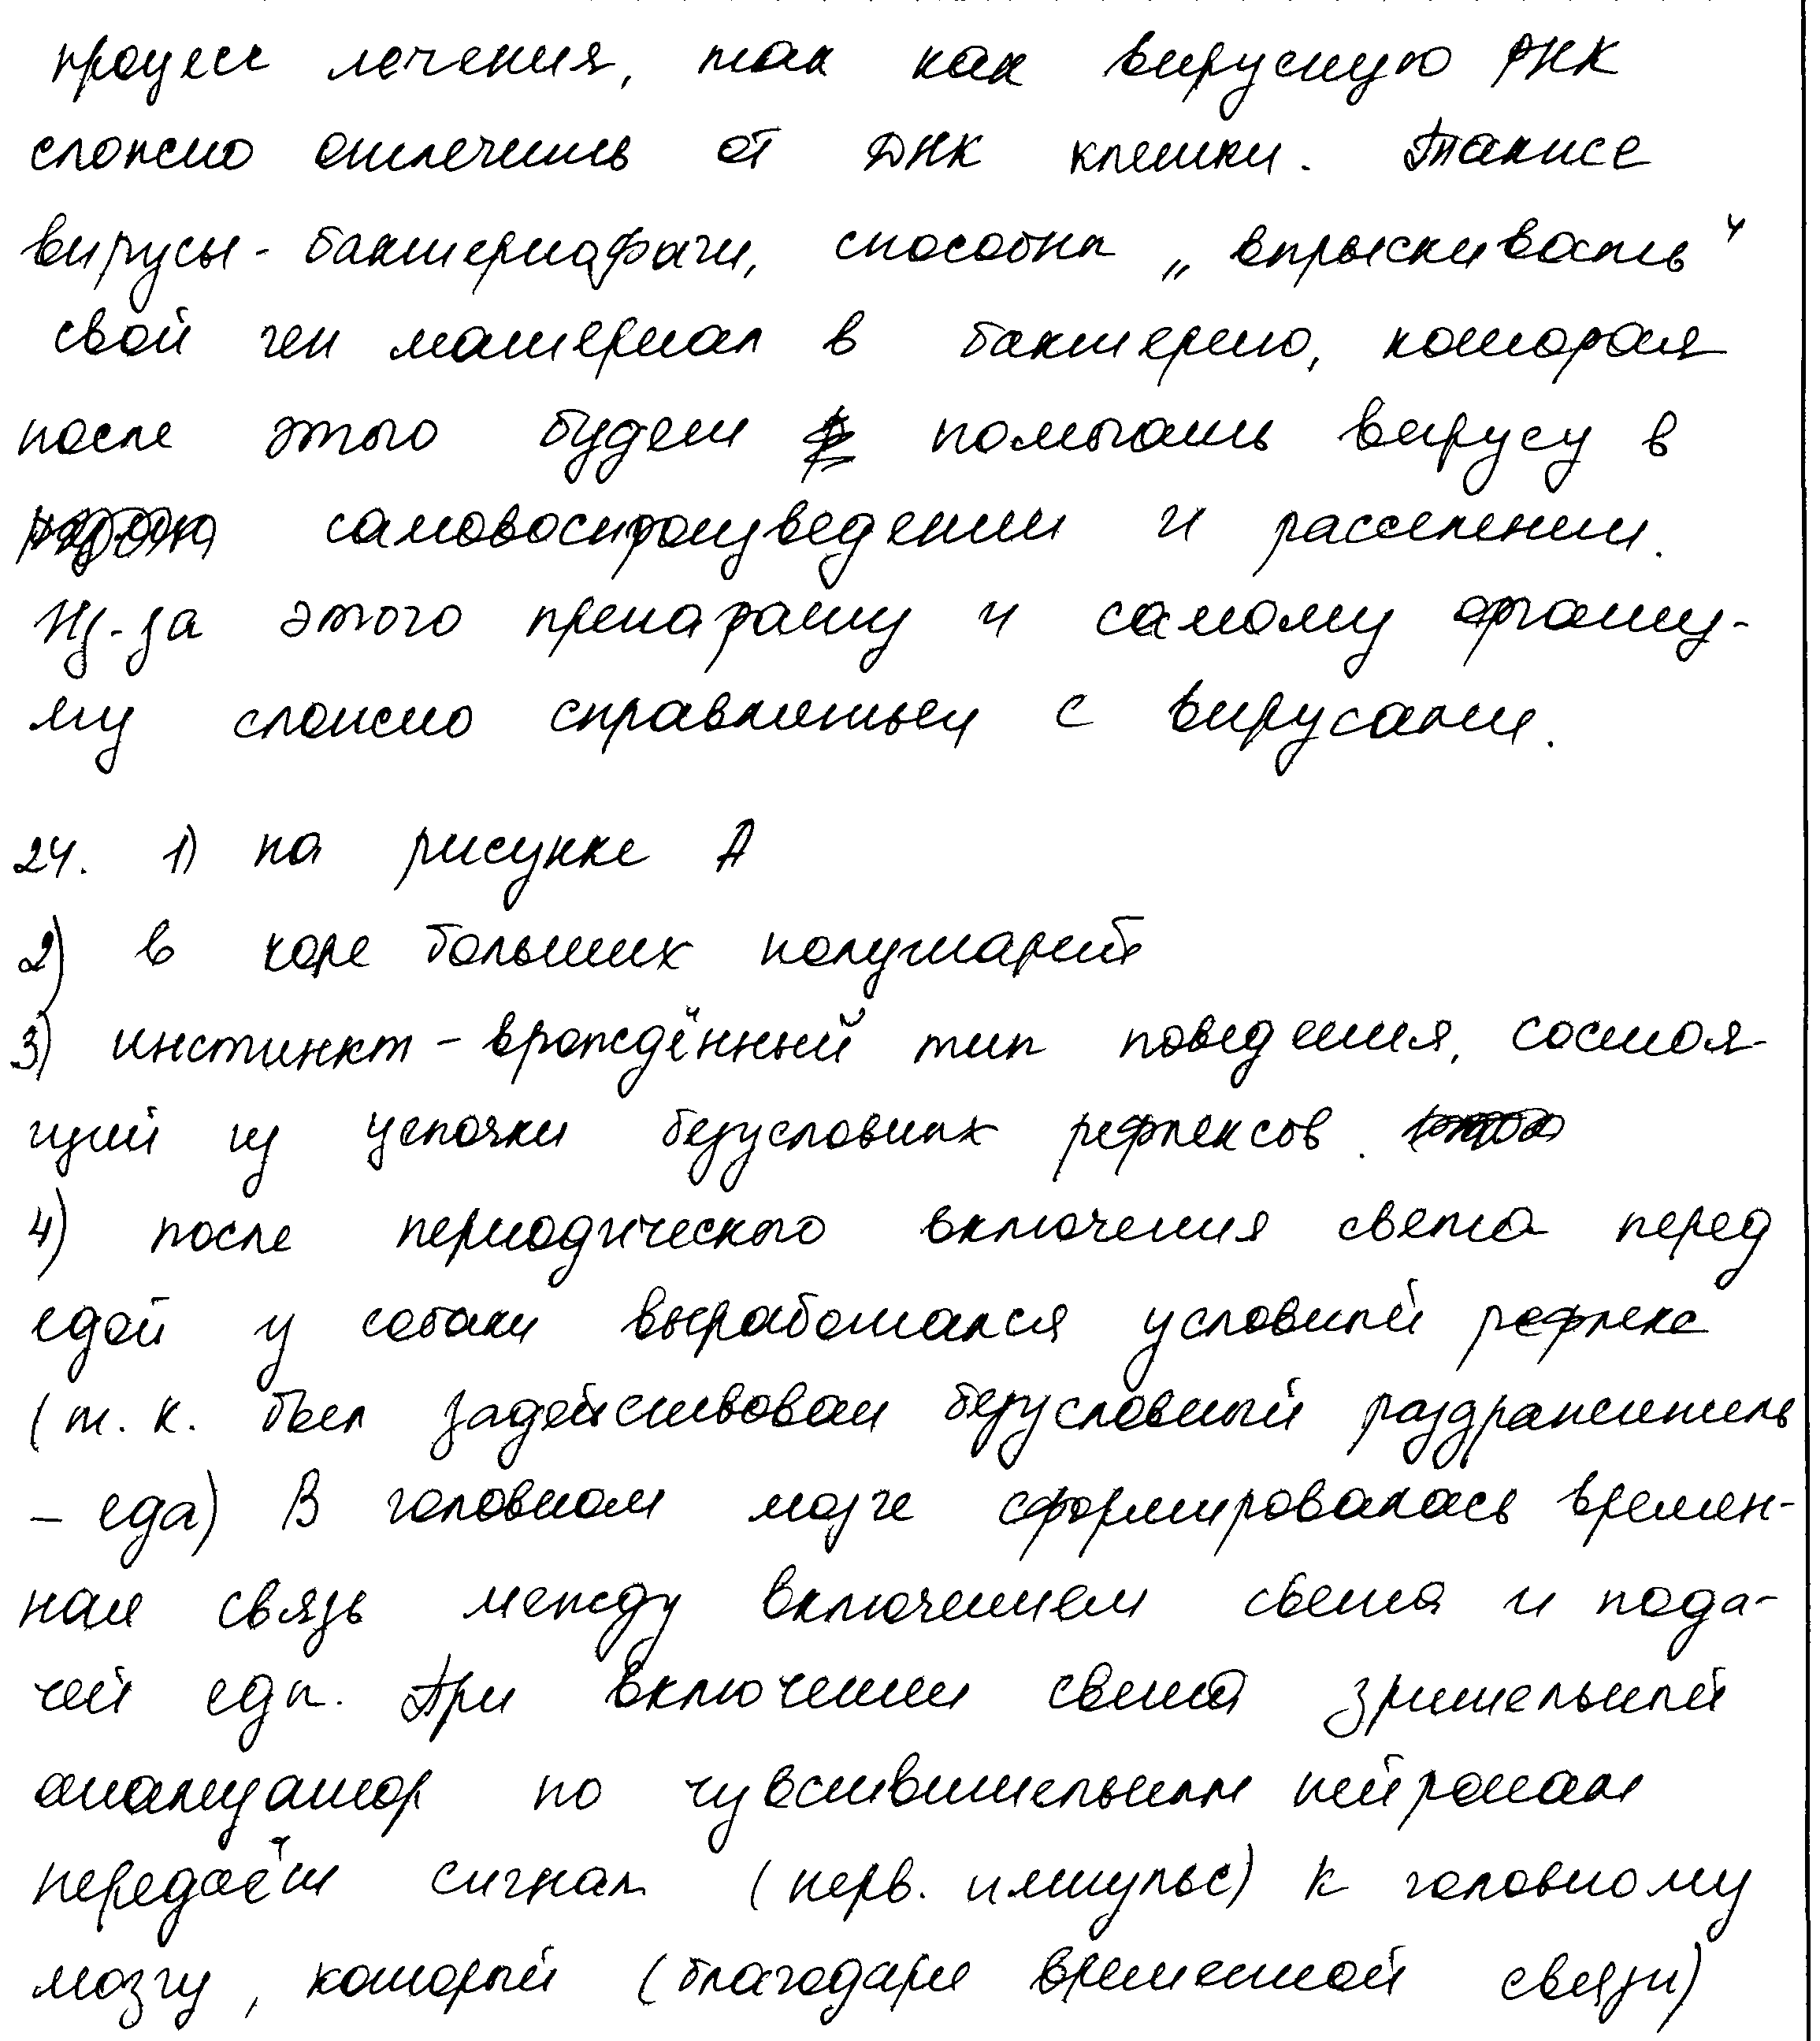 процесс лечения, так как вирусную РНК
сложно отличить от ДНК клетки. Также
вирусы-бактериофаги, способны „впрыскивать“
свой ген материал в бактерию, которая
после этого будет помогать вирусу в
самовоспроизведении и расселении.
Из-за этого препарату и самому организ-
му сложно справляться с вирусами.
24. 1) на рисунке А
2) в коре больших полушарий
3) инстинкт - врождённый тип поведения, состоя-
щий из цепочки безусловных рефлексов.
4) после периодического включения света перед
едой у собаки выработался условный рефлекс
(т.к. был задействован безусловный раздражитель
- еда) В головном мозге сформировалась времен-
ная связь между включением света и пода-
чей еды. При включении света зрительный
анализатор по чувствительным нейронам
передаёт сигнал (нерв. импульс) к головному
мозгу, который (благодаря временной связи)